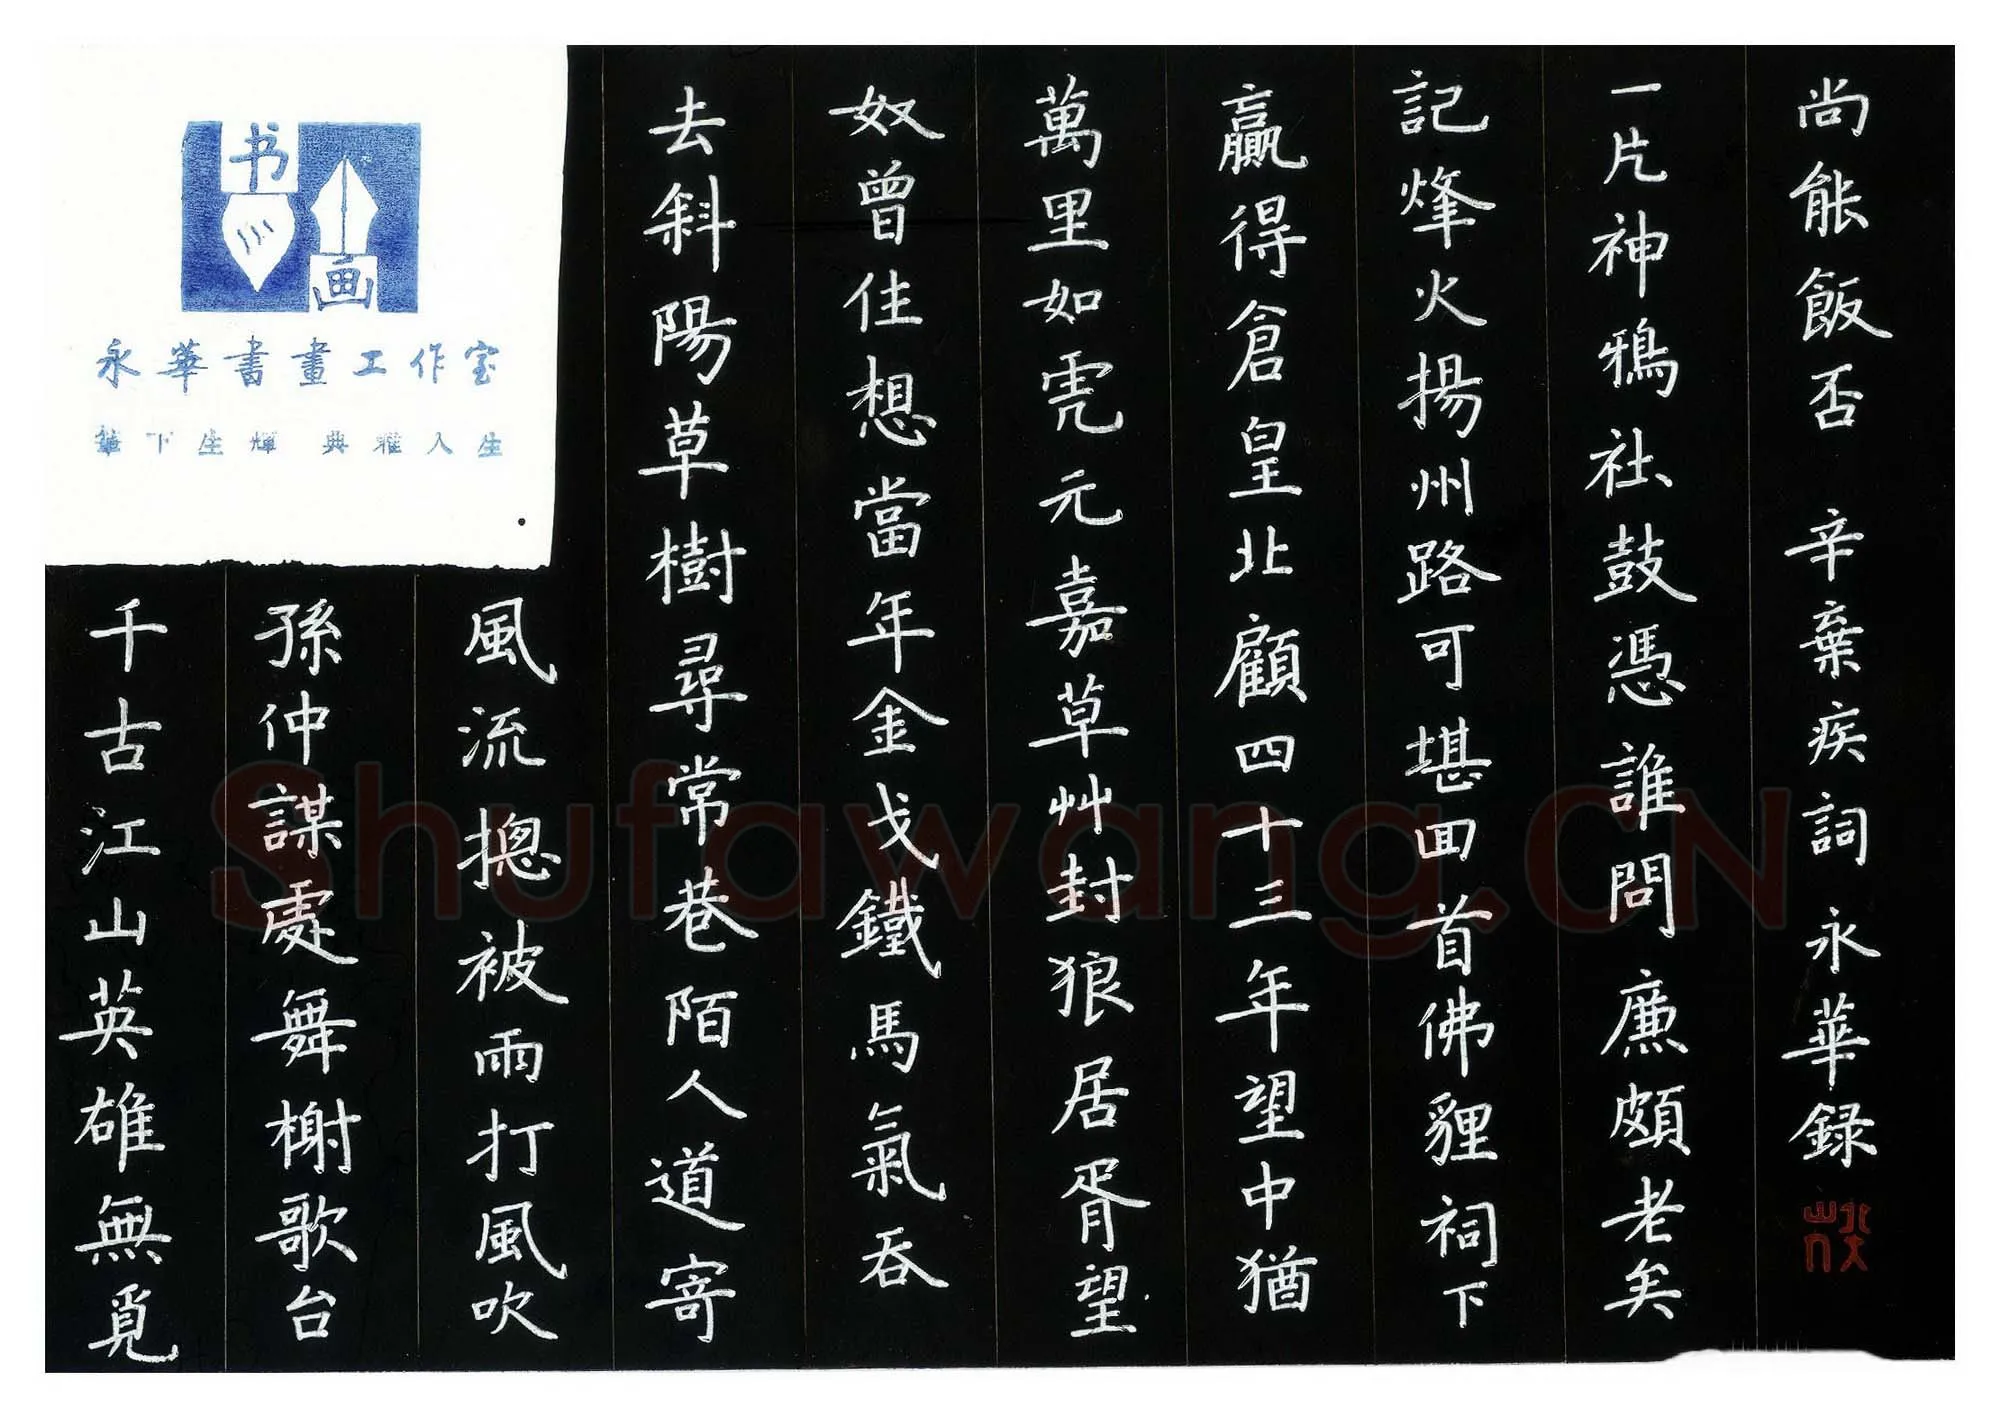 书画
永華書畫工作室
筆下生輝 典雅人生
千古江山英雄無覓
孫仲謀處舞榭歌台
風流摠被雨打風吹
去斜陽草樹尋常巷陌人道寄
奴曾住想當年金戈鐵馬氣吞
萬里如虎元嘉草艸封狼居胥望
贏得倉皇北顧四十三年望中猶
記烽火揚州路可堪囬首佛貍祠下
一片神鴉社鼓憑誰問廉頗老矣
尚能飯否 辛棄疾詞 永華録
Shufawang.CN